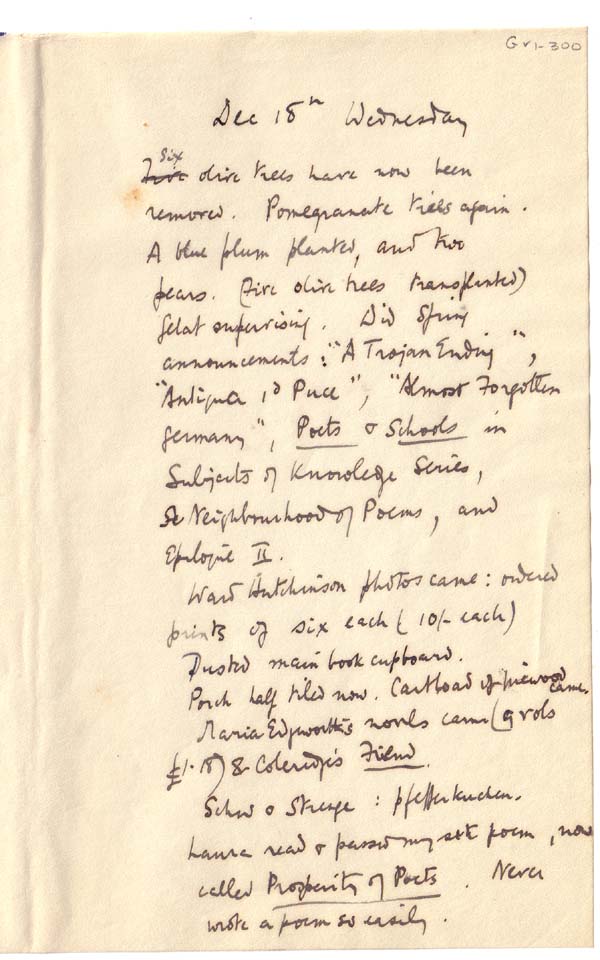 Gv1-300
Dec 18th Wednesday
Five Six olive trees have now been
removed. Pomegranate trees again.
A blue plum planted, and two
pears. (Five olive trees transplanted)
Gelat supervising. Did Spring
announcements: "A Trojan Ending",
"Antigua, 1d Puce", "Almost Forgotten
Germany", Poets & Schools in
Subjects of Knowledge Series,
Neighbourhood of Poems, and
Epilogue II.
Ward Hutchinson photos came: ordered
prints of six each (10/- each)
Dusted main book cupboard.
Porch half tiled now. Cartload of pinewood came.
Maria Edgworth's novels came (9 vols
£1-18) & Coleredge's Friend.
& Strenge: pfefferkuchen.
Laura read & passed my poem, now
called Prosperity of Poets. Never
wrote a poem so easily.